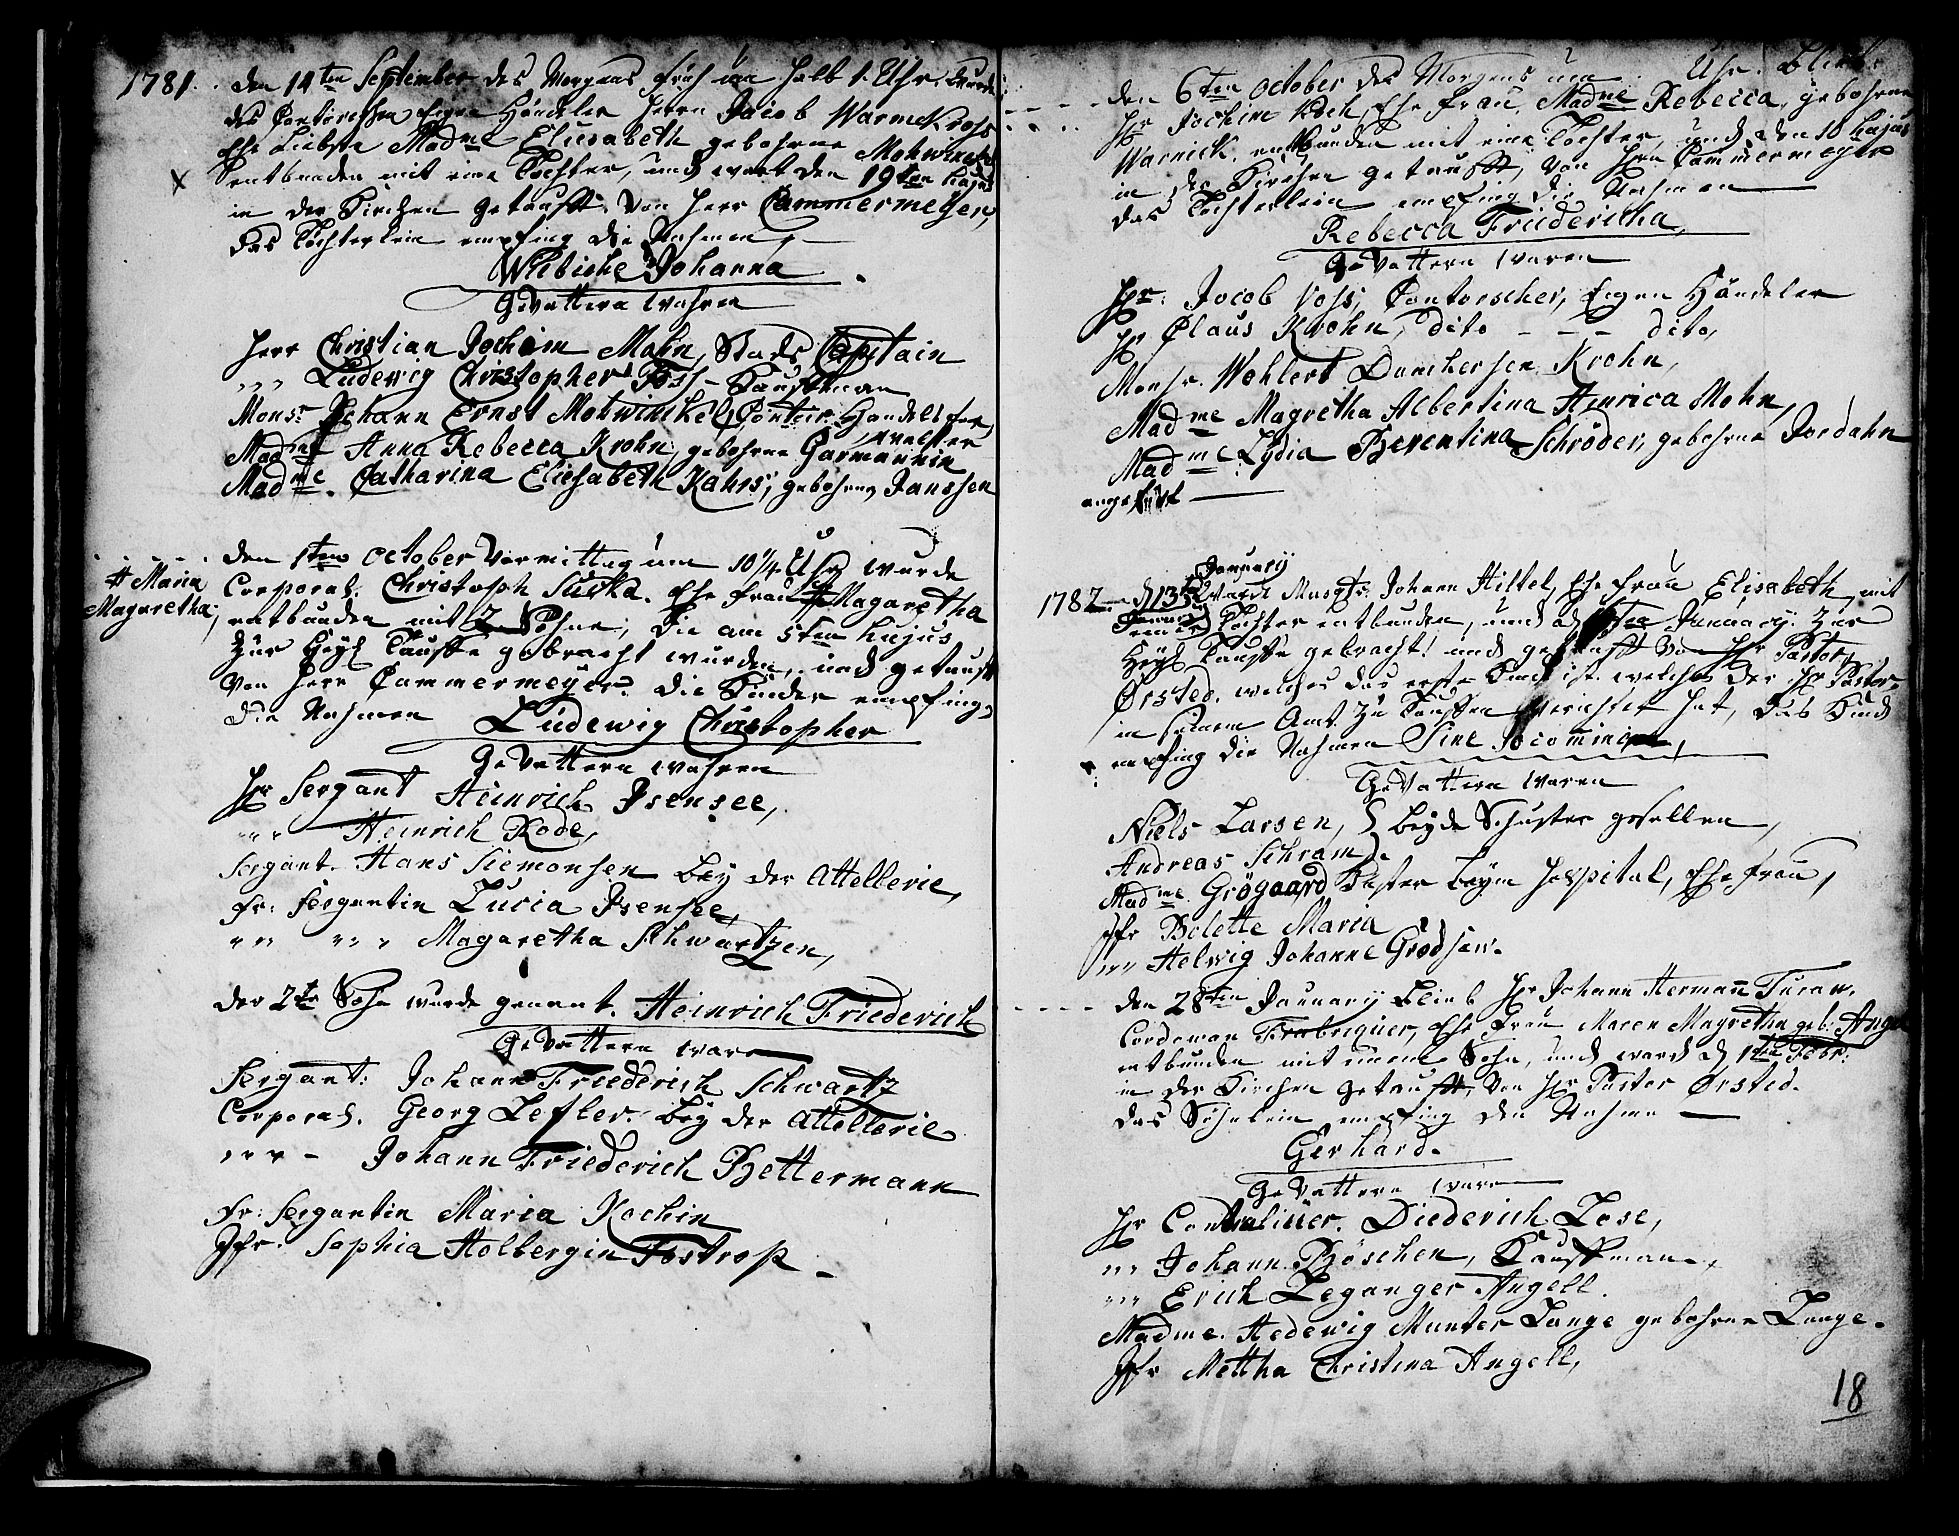 1781. den 14ten September des Morgens früh um halb 1. Uhr. wurde
des Contorischen Eigen Händeler Herrn Jacob Warmekross
Ehe Liebste Madme Eliesabeth gebohrne Mohwinckel
x entbunden mit eine Tochter, und wart den 19ten hujus
in der Kirchen getaufft. von Herr Cammermeyer,
das Töchterlein empfing die Nahmen,
Wiebische Johanna
Gevattern wahren
Herr Christian Jochim Mohn, Stads Capitain
" " " Ludewig Christopher Foss - Kauffman
Monsr Johann Ernst Mohwinckel, Contor. Handels Ver
walter
Madme Anna Rebecca Krohn, gebohrne Garmannin
Madme. Catharina Eliesabeth Kahrs, gebohrne Janssen
den 1ten October Vormittag um 10 1/4 Uhr wurde
# Maria
Magaretha,
Corporal. Christoph Sucka. Ehe Frau # Magaretha
entbunden mit 2 Söhne, die am 5ten hujus
Zur Heyl Tauffe gebracht wurden, und getaufft
von Herr Cammermeyer. Die Kinder empfing,
die Nahmen Ludewig Christopher
Gevattern wahren
Hr Sergant Heinrich Isensee,
" " " Heinrich Rode,
Sergant. Hans Siemonsen bey der Attellerie,
Fr: Sergantin Lucia Isensee,
" " " " " " Magaretha Schwartzen,
der 2te Sohn wurde genant. Heinrich Friederich
Gevattern waren
Sergant: Johann Friederich Schwartz
Corporal. Georg Lefler. bey der Attellerie
" " " - Johann Friederich Bettermann
Fr: Sergantin Maria Kochin
Jfr. Sophia Holbergin Fostrop.
den 6ten October des Morgens um Uhr. blieb.
Hr Jochim Koch, Ehe Frau, Madme Rebecca, gebohrne
Warnick. entbunden mit eine Tochter, und den 10 hujus
in der Kirchen getaufft, von Hrn Cammermeyer
das Töchterlein empfing die Nahmen
Rebecca Friedericha,
Gevattern waren
Hr. Jocob Voss, Contorscher, Eigen Händeler
Hr Claus Krohn, dito - - - dito,
Monsr. Wohlert Danckersen Krohn,
Madme Magretha Albertina Henrica Mohn,
Madme: Lydia Berentina Schröder, gebohrne Jordahn
January
1782. d 13te ward Musqtr. Johann Hiltel, Ehe Frau Elisabeth, mit
einer Tochter entbunden, und d January. zur
Heyl Tauffe gebracht! und getaufft von Hr Pastor,
Ørsted. welches das erste Kind ist. welches der Hr Pastor
in seinem Amt zu Tauffen verichtet hat, das Kind
empfing die Nahmen Sine
Gevattern waren
Niels Larsen, } beyde Schuster gesellen,
Andreas Schram.
Madme. Grögaard Küster beym Hospital, Ehe Frau,
Jfr Bolette Maria
" " " Helwig Johanne Grødsen.
den 28ten January blieb Hr Johann Hermann Turau.
Cordeman Frabriquer, Ehe Frau Maren Magretha geb. Angel
entbunden mit einem Sohn, und ward d 1ten Febr:
in der Kirchen getaufft, von Hr Pastor Ørsted.
das Söhnlein empfing den Nahme
Gerhard.
Gevattern waren
Hr Contraliuer. Diederich Lose,
" " Johann Böschen, Kauffman.
" " " Erich Leganger Angell.
Madme. Hedewig Munter Lange gebohrne Lange.
Jfr Mettha Christina Angell,
18